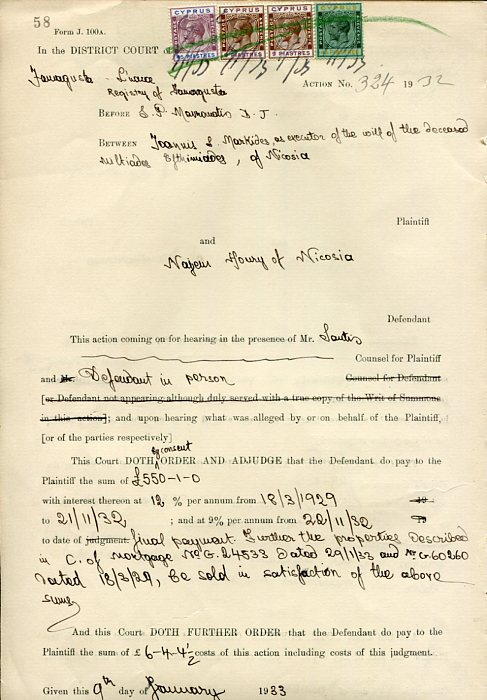 58
Form J. 100A.
CYPRUS CYPRUS CYPRUS CYPRUS
9 PIASTRES
In the DISTRICT COURT of
Famagusta - Larnaca
Registry of Famagusta
ACTION No. 324 1932
BEFORE S. P. D. J.
BETWEEN Joannis S. Markides, as executor of the will of the deceased
Efthimiades, of Nicosia
Plaintiff
and
Houry of Nicosia
Defendant
This action coming on for hearing in the presence of Mr. Santis
Counsel for Plaintiff
and Mr. Defendant in person Counsel for Defendant
[or Defendant not appearing although duly served with a true copy of the Writ of Summons
in this action]; and upon hearing what was alleged by or on behalf of the Plaintiff,
[or of the parties respectively]
by consent
This Court DOTH ORDER AND ADJUDGE that the Defendant do pay to the
Plaintiff the sum of £550-1-0
with interest thereon at 12 % per annum from 18/3/1929 19
to 21/11/32 ; and at 9% per annum from 22/11/32 19
to date of judgment. final payment. Further the properties described
in C. of mortgage No G. 24533 dated 29/1/33 and No G. 60260
dated 18/3/29, be sold in satisfaction of the above
sums
And this Court DOTH FURTHER ORDER that the Defendant do pay to the
Plaintiff the sum of £ 6-4-4½ costs of this action including costs of this judgment.
Given this 9th day of January 1933